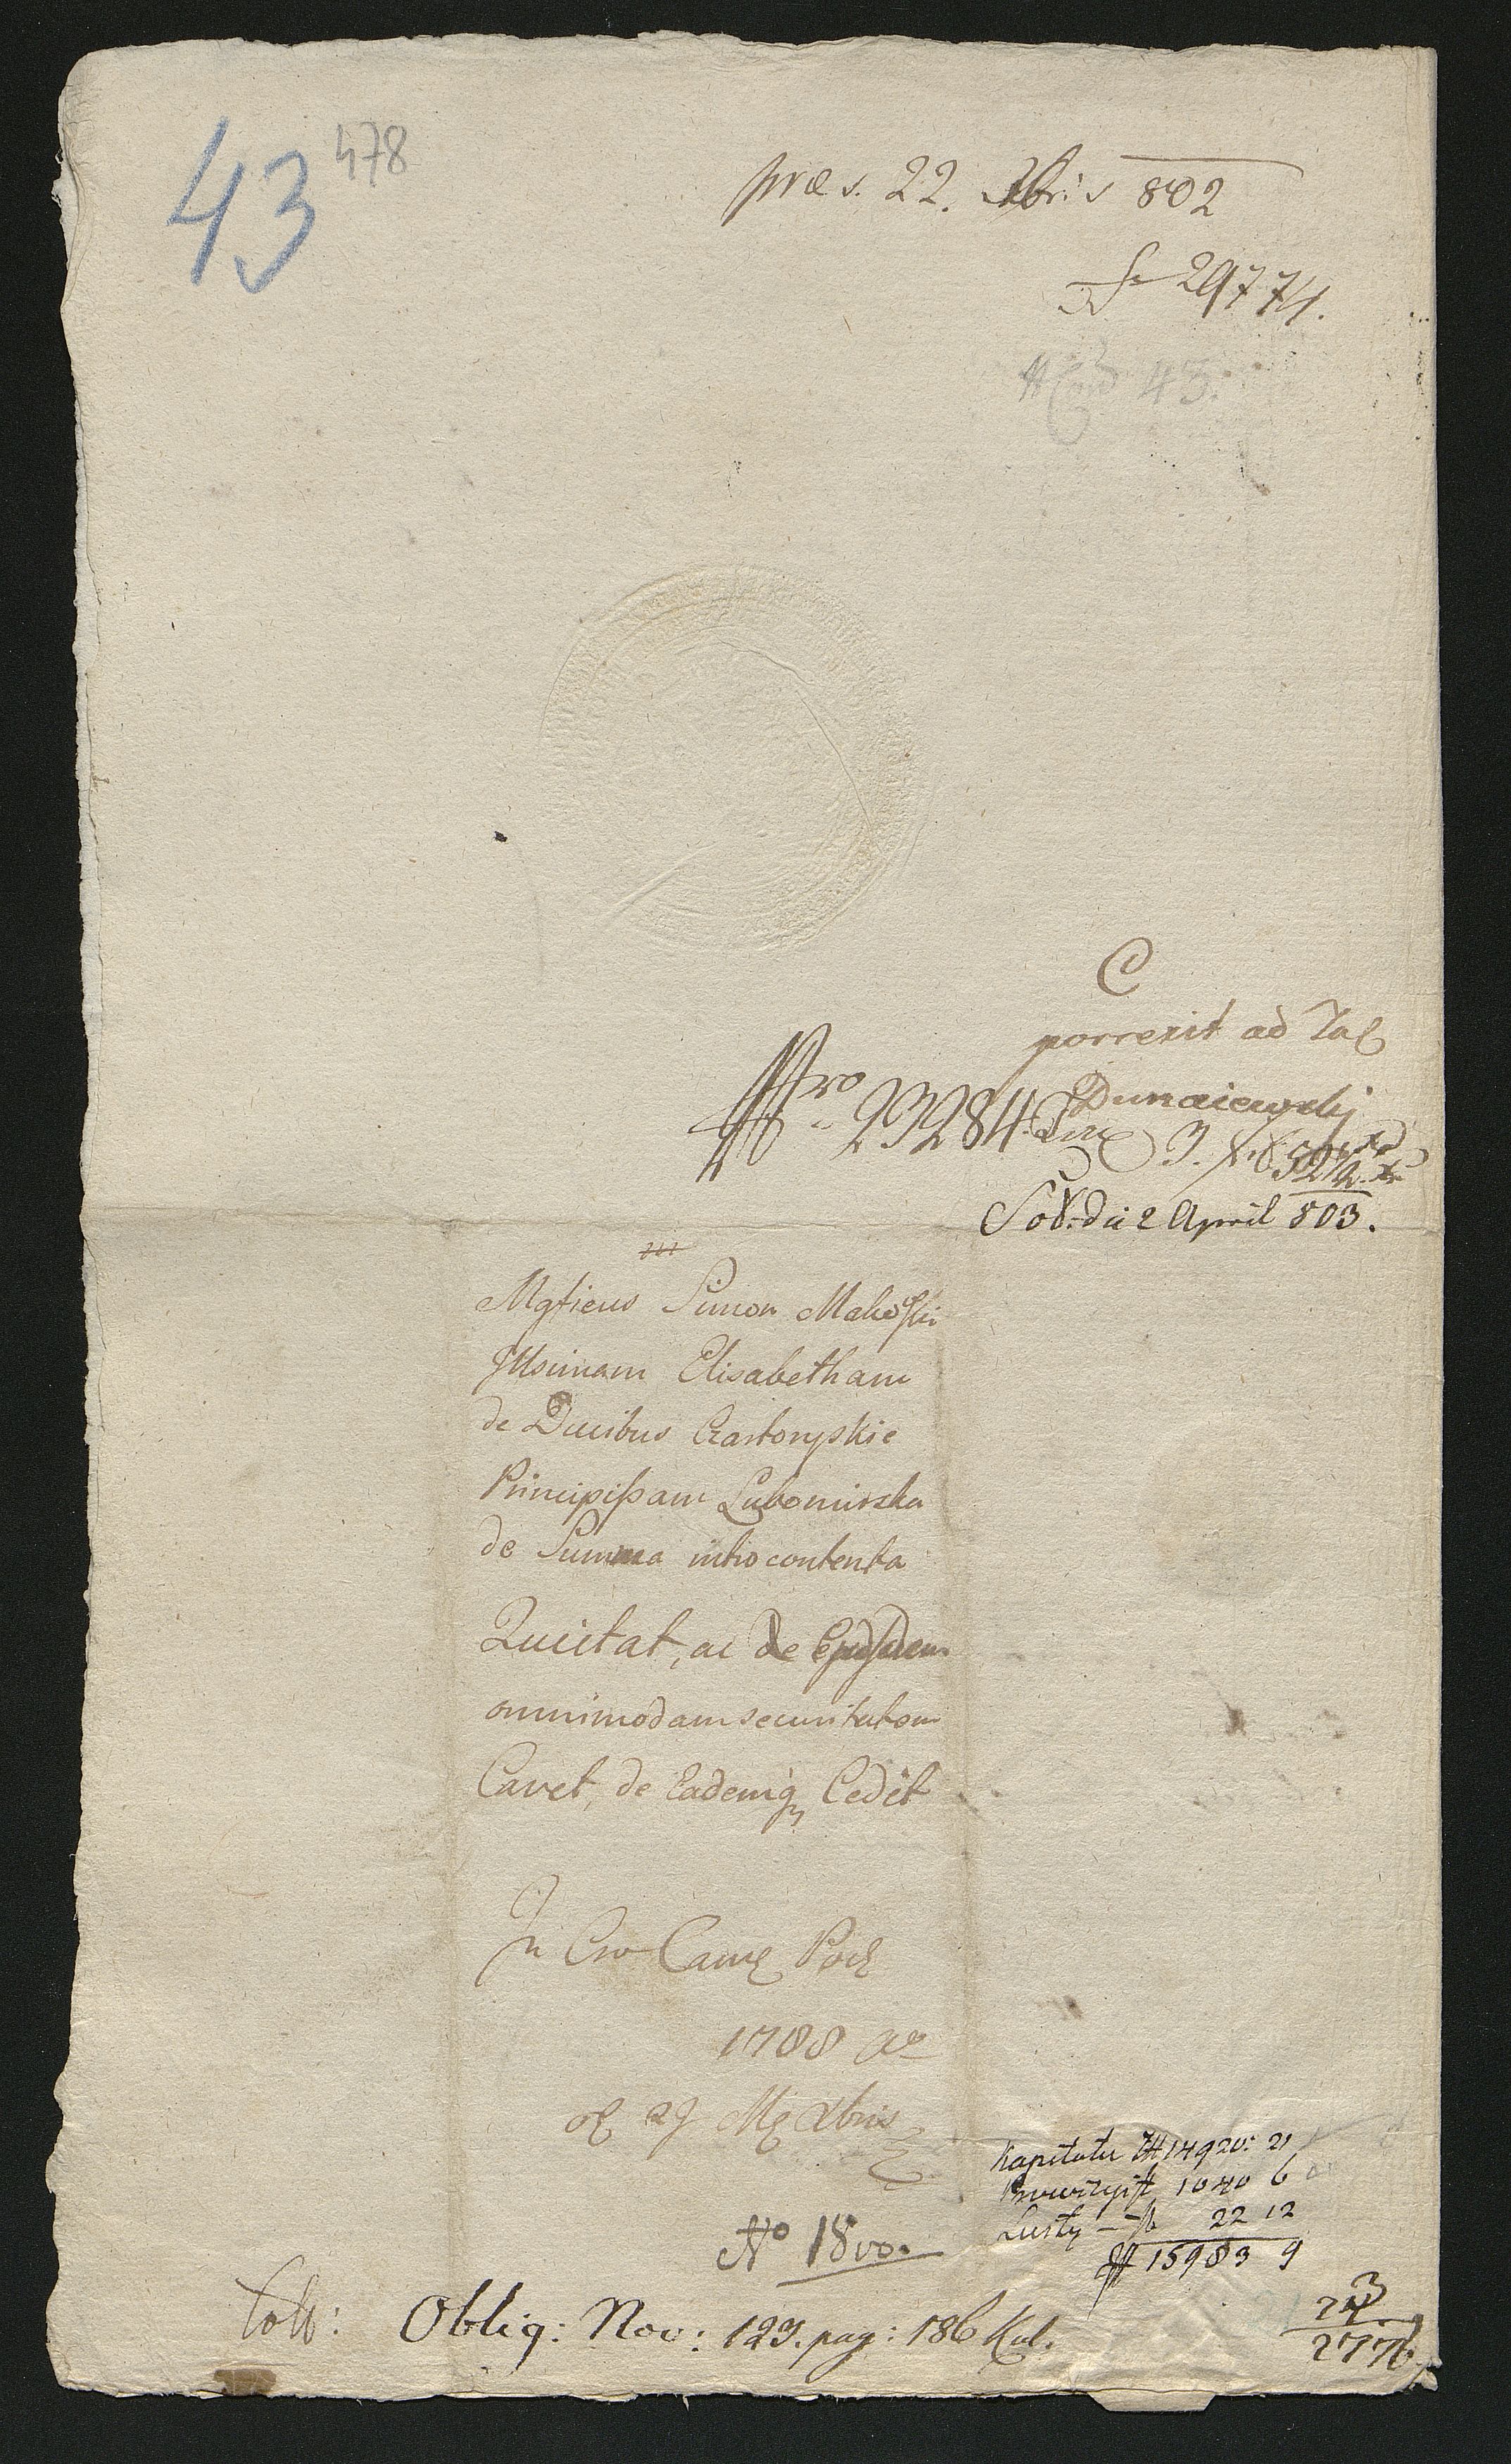 43 478
præs. 22. Xbris 802
29774.
43.
C
porrexit ad Tax
Dunaiewski
Nro 23284. 3. 52½ xr
Sol: dii 2 April 803.
Mgficus Simon Makoski
Jllsimam Elisabetham
de Ducibus Czartoryskie
Principissam Lubomirska
de Summa intro contenta
Quietat, ac de
omnimodam securitatem
Cavet, de Eademq Cedit
In Cro Came Pocz
1788 Ao
29 Xbris
Kapitału 14920: 21
Prowizyi 1040 6
Lusty – 22 12
15983 9
No 1800.
Coll: Oblig: Nov: 123. pag: 186 Kal.
3